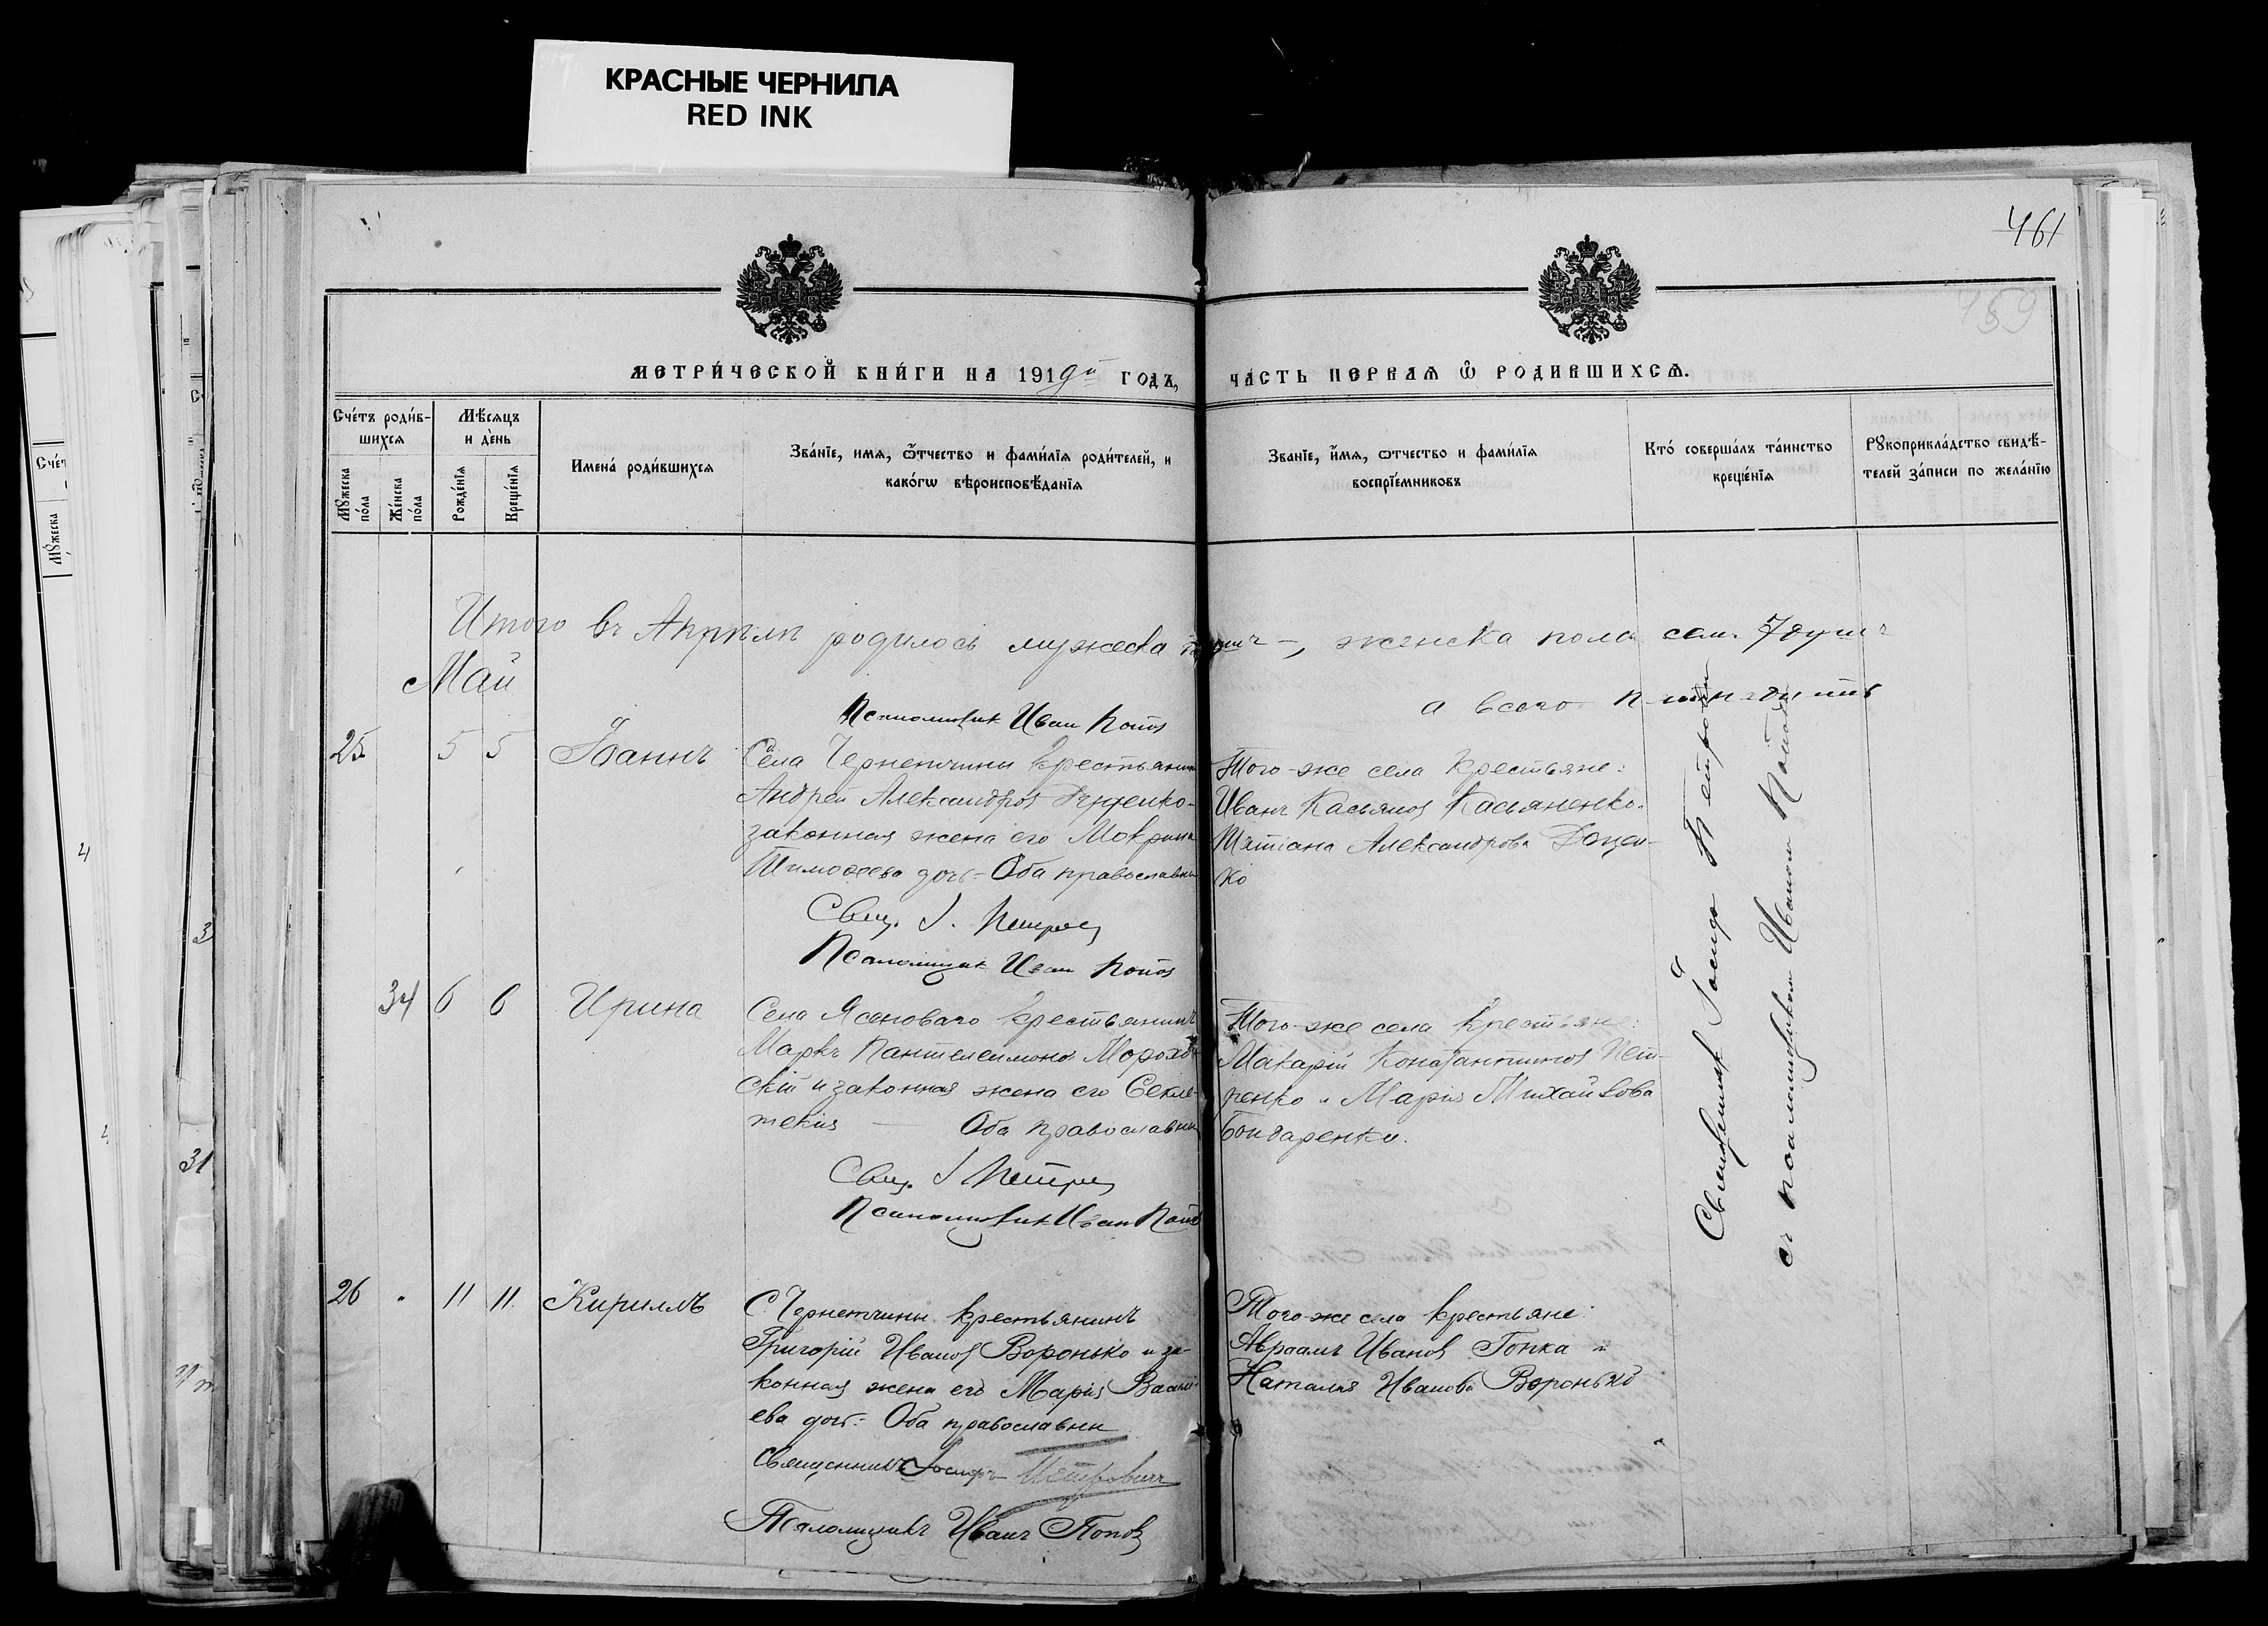 КРАСНЫЕ ЧЕРНИЛА
RED INK
461
459
МЕТРИ́ЧЕСКОЙ КНИ́ГИ НА 1919й ГОДЪ,
ЧАСТЬ ПЕРВАЯ Ѿ РОДИВШИХСѦ.
Сче́тъ роди́в-
шихсѧ
Мѣ́сѧцъ
и де́нь
Мꙋ́жеска
по́ла
Же́нска
по́ла
Рожде́нїѧ
Креще́нїѧ
Имена́ роди́вшихсѧ
Зва́нїе, имѧ, ѻ҆́тчество и фами́лїѧ роди́телей, и
како́гѡ вѣроисповѣ́данїѧ
Званїе, и҆́мѧ, ѻтчество и фами́лїѧ
воспрїе́мниковъ
Кто́ соверша́лъ та́инство
креще́нїѧ
Рꙋкоприкла́дство свидѣ́-
телей за́писи по жела́нїю
Итого въ Апрѣлѣ родилось мужеска
женска пола сем. 7 душъ
Май
а всего
Псаломщик Иван Попов
25 5 5 Іоаннъ
Села Чернетчини крестьянин
Андрей Александров
законная жена его Мокрина
Тимофеева дочь - Оба православни
Свящ. І. Петров
Псаломщик Иван Попов
Того-же села крестьяне:
Иванъ Касьянов Касьяненко.
Татіана Александрова Доцен-
ко
34 6 6 Ирина
Села Ясеноваго крестьянинъ
Маркъ Пантелеимонов Морохов
скій и законная жена его Секле-
текія — Оба православни
Свящ. І Петров
Псаломщик Иван Попов
Того-же села крестьяне:
Макарій Константинов Пет-
ренко и Марія Михайлова
Бондаренко.
26 " 11 11. Кириллъ
С. Чернетчини крестьянинъ
Григорій Иванов Воронько и за-
конная жена его Марія Васили-
ева дочь:- Оба православни
Священникъ Іосифъ Петровичъ
Псаломщикъ Иванъ Попов
Того-же села крестьяне:
Авраамъ Иванов Гопка и
Наталія Иванова Воронько
Священник Іосиф
съ псаломщиком Иваном Поповым